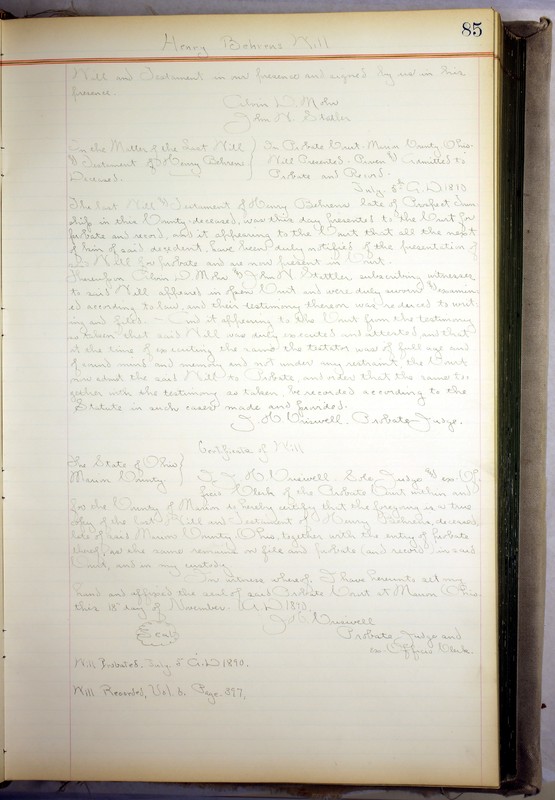 85
Henry Behrens Will
Will and Testament in our presence and signed by us in his
presence.
Alvin D. Mohr
John H. Stoller
In the Matter of the Last Will
& Testament of Henry Behren
Deceased.
In Probate Court. Marion County, Ohio.
Will Presented. Proven & Admitted to
Probate and Record.
July. 5th A.D. 1890
The last Will & Testament of Henry Behrens late of Prospect Town
ship in this County deceased, was this day presented to the Court for
probate and record, and it appearing to the Court that all the next
of kin of said decedent, have been duly notified of the presentation of
Will for probate and are now present in Court.
Thereupon Alvin D. Mohr & John H Stattler, subscribing witnesses
to said Will appeared in open Court and were duly sworn & examin
ed according to law, and their testimony thereon was reduced to writ
ing and filed. - And it appearing to the Court from the testimony
so taken that said Will was duly executed and attested, and that
at the time of executing the same the testator was of full age and
of sound mind and memory and not under any restraint the Court
now admit the said Will to Probate, and order that the same to
gether with the testimony so taken, be recorded according to the
Statute in such cases made and provided.
J H Criswell. Probate Judge.
Certificate of Will
The State of Ohio
Marion County.
I, J. H. Criswell. Sole Judge & ex. Of
ficio Clerk of the Probate Court within and
for the County of Marion do hereby certify that the foregoing is a true
copy of the last Will and Testament of Henry Behrens, deceased,
late of said Marion County Ohio, together with the entry of probate
thereof, as the same remains on file and probate (and record) in said
Court, and in my custody.
In witness whereof, I have hereunto set my
hand and affixed the seal of said Probate Court at Marion Ohio,
this 18 day of November. A.D. 1890.
J H Criswell
Seal
Probate Judge and
ex. Officio Clerk.
Will Probated. July. 5 A.D. 1890.
Will Recorded, Vol. 6. Page. 397.